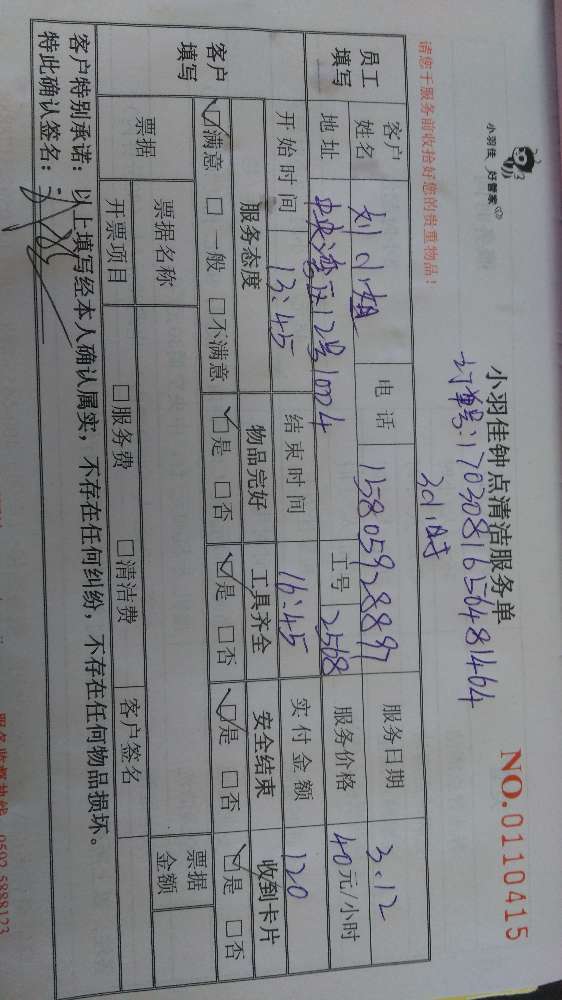 小羽佳 好管家
小羽佳钟点清洁服务单
NO.0110415
订单号:1703081650481464
请您于服务前收拾好您的贵重物品!
3小时
员工填写
客户姓名 刘小姐 电话 15805928897 服务日期 3.12
地址 中央湾区12号1004 工号 2568 服务价格 40元/小时
客户填写
开始时间 13:45 结束时间 16:45 实付金额 120
服务态度 物品完好 工具齐全 安全结束 收到卡片
☑满意 □一般 □不满意 ☑是 □否 ☑是 □否 ☑是 □否 ☑是 □否
票据 票据名称 票据金额
开票项目 □服务费 □清洁费 客户签名
客户特别承诺:以上填写经本人确认属实,不存在任何纠纷,不存在任何物品损坏。
特此确认签名:
服务监督热线 0592 5888123